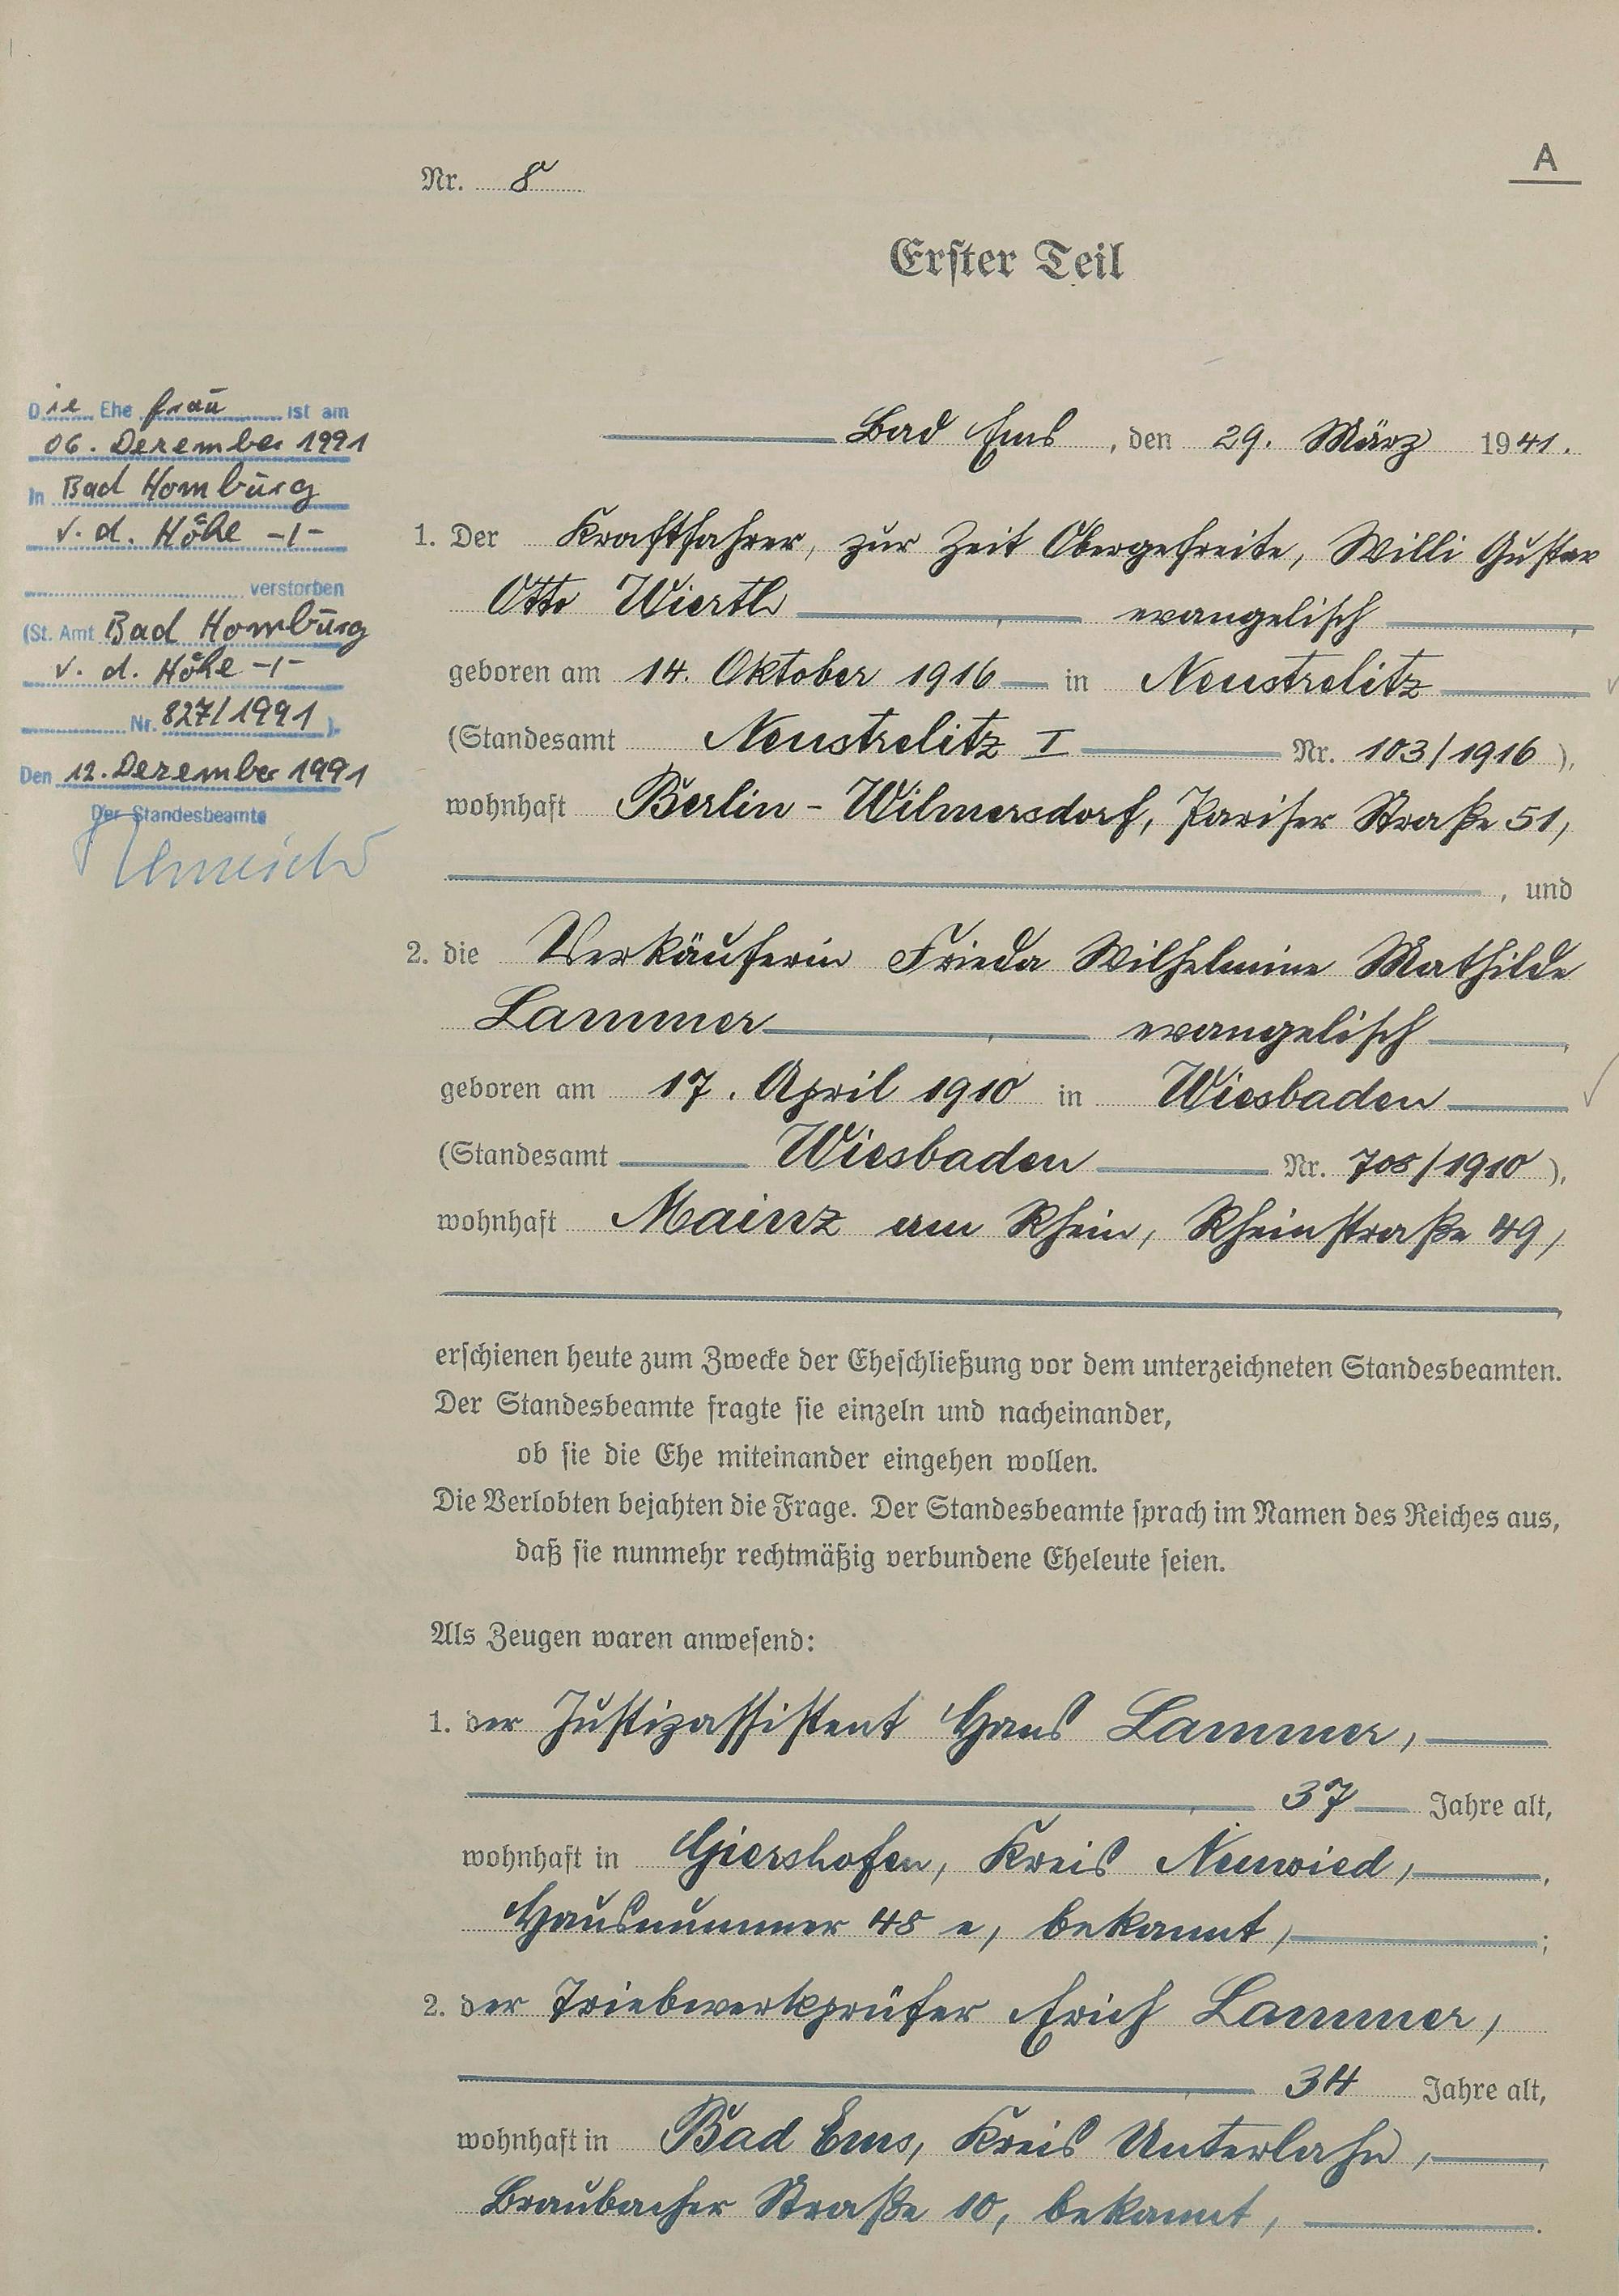 A
Nr. 8
Erster Teil
Die Ehefrau ist am
06. Dezember 1991
in Bad Homburg
v. d. Höhe -/-
verstorben
(St. Amt Bad Homburg
v. d. Höhe -/-
Nr. 827/1991).
Den 12. Dezember 1991
Der Standesbeamte
Bad Ems, den 29. März 1941.
1. Der Kraftfahrer, zur Zeit Obergefreite, Willi Gustav
Otto Wierth, evangelisch,
geboren am 14. Oktober 1916 in Neustrelitz
(Standesamt Neustrelitz I Nr. 103/1916),
wohnhaft Berlin-Wilmersdorf, Pariser Straße 51,
, und
2. die Verkäuferin Frieda Wilhelmine Mathilde
Lammer, evangelisch,
geboren am 17. April 1910 in Wiesbaden
(Standesamt Wiesbaden Nr. 708/1910),
wohnhaft Mainz am Rhein, Rheinstraße 49,
erschienen heute zum Zwecke der Eheschließung vor dem unterzeichneten Standesbeamten.
Der Standesbeamte fragte sie einzeln und nacheinander,
ob sie die Ehe miteinander eingehen wollen.
Die Verlobten bejahten die Frage. Der Standesbeamte sprach im Namen des Reiches aus,
daß sie nunmehr rechtmäßig verbundene Eheleute seien.
Als Zeugen waren anwesend:
1. der Justizassistent Hans Lammer,
37 Jahre alt,
wohnhaft in Giershofen, Kreis Neuwied,
Hausnummer 48 e, bekannt,;
2. der Triebwerkprüfer Erich Lammer,
34 Jahre alt,
wohnhaft in Bad Ems, Kreis Unterlahn,
Braubacher Straße 10, bekannt,.